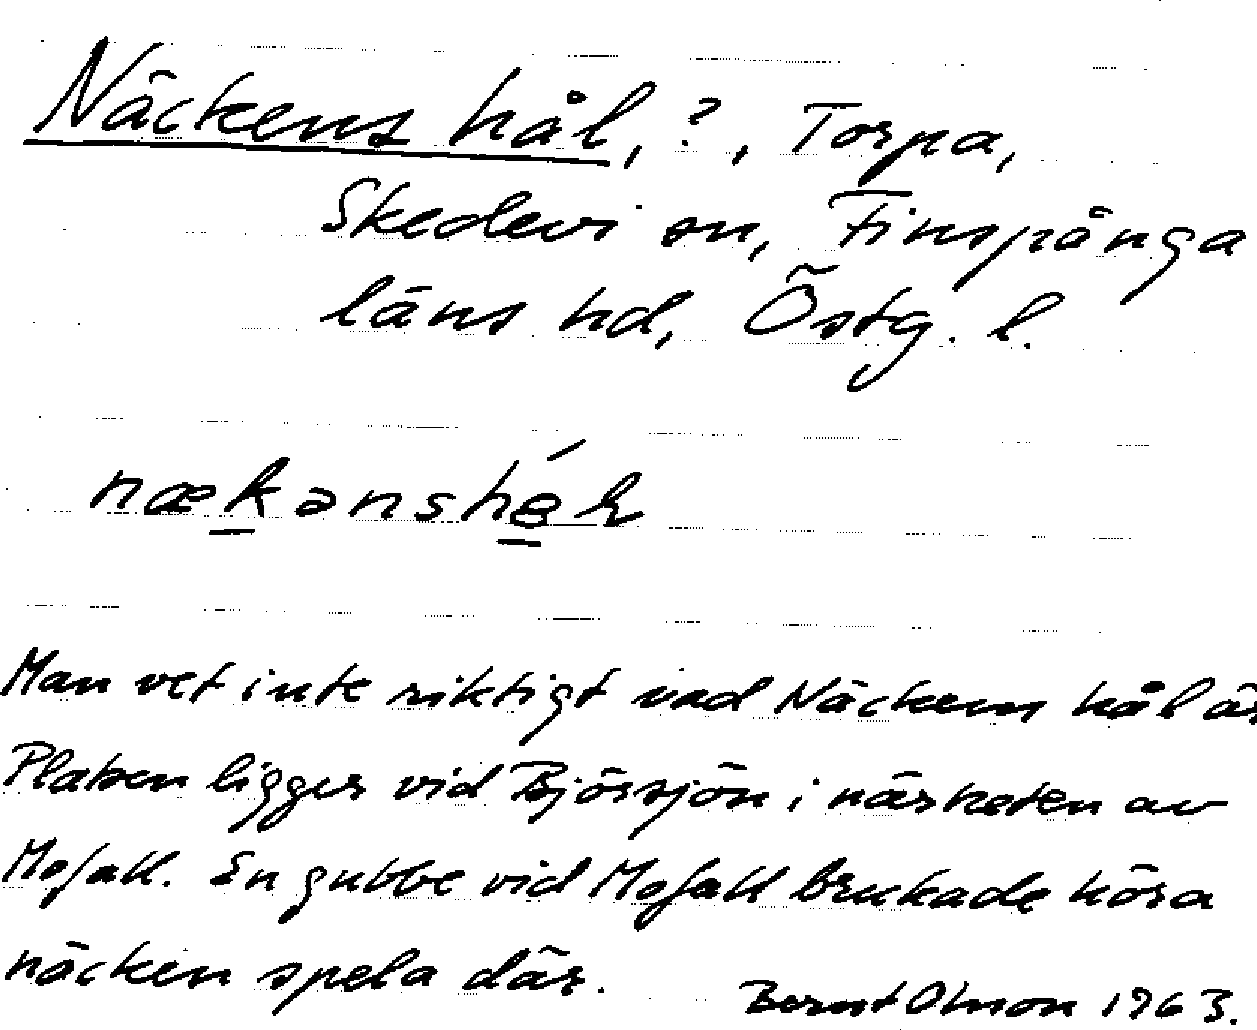 Näckens hål, ?, Torpa,
Skedevi sn, Finspånga
läns hd, Östg. l.
Man vet inte riktigt vad Näckens hål är
Platsen ligger vid Björsjön i närheten av
Mofall. En gubbe vid Mofall brukade höra
näcken spela där.
Bernt Olsson 1963.